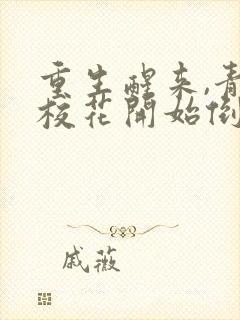 重生醒来,青
校花開始倒
戚薇